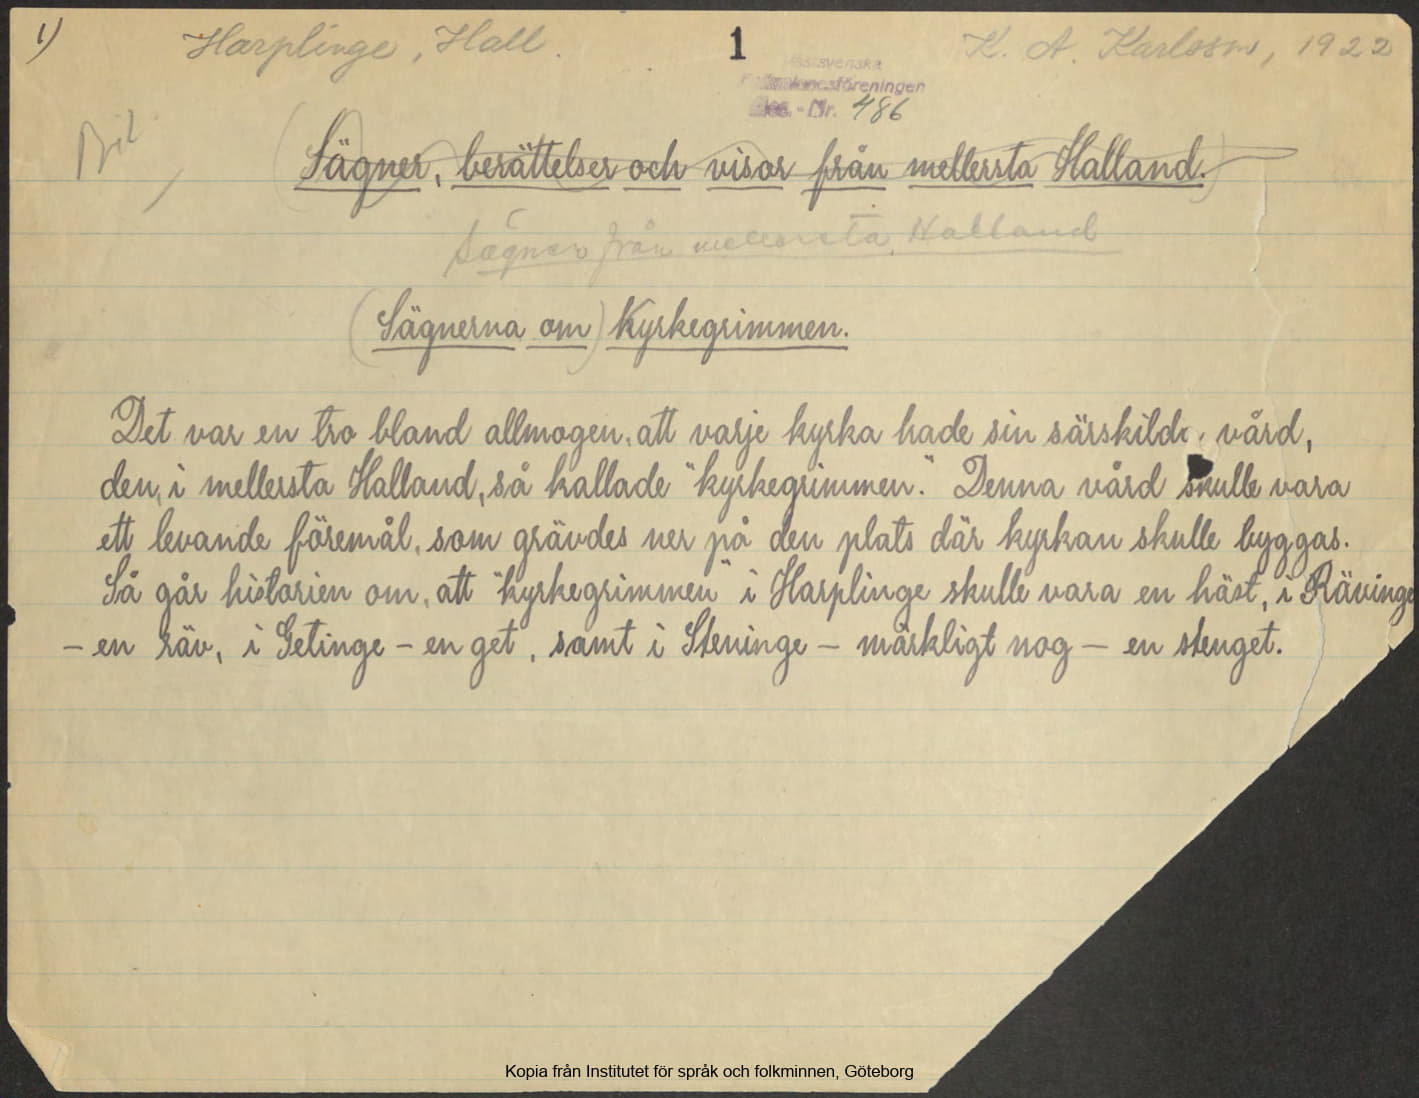 1) Harplinge, Hall. 1 K. A. Karlsson, 1922
Västsvenska
Folkminnesföreningen
Acc. - Nr. 486
Bil
(Sägner, berättelser och visor från mellersta Halland.)
Sägner från mellersta Halland
(Sägnerna om) Kyrkegrimmen.
Det var en tro bland allmogen, att varje kyrka hade sin särskilda vård,
den, i mellersta Halland, så kallade "kyrkegrimmen." Denna vård skulle vara
ett levande föremål, som grävdes ner på den plats där kyrkan skulle byggas.
Så går historien om, att "kyrkegrimmen" i Harplinge skulle vara en häst, i Rävinge
– en räv, i Getinge – en get, samt i Steninge – märkligt nog – en stenget.
Kopia från Institutet för språk och folkminnen, Göteborg